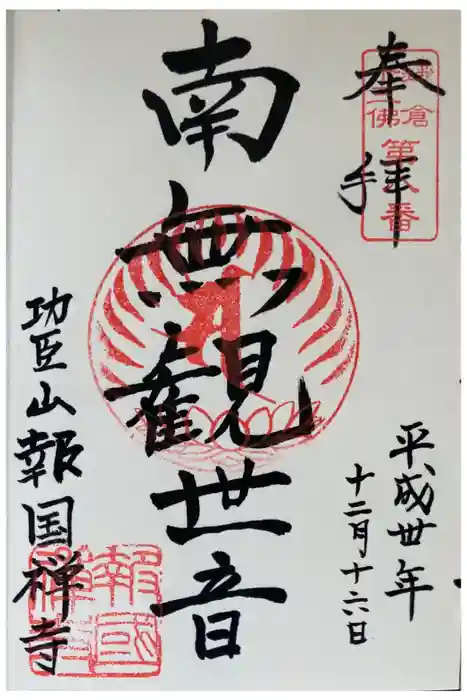 奉拝
鎌倉
十三佛
第八番
平成卅年
十二月十六日
南無観世音
功臣山報国禅寺
報國
禅寺